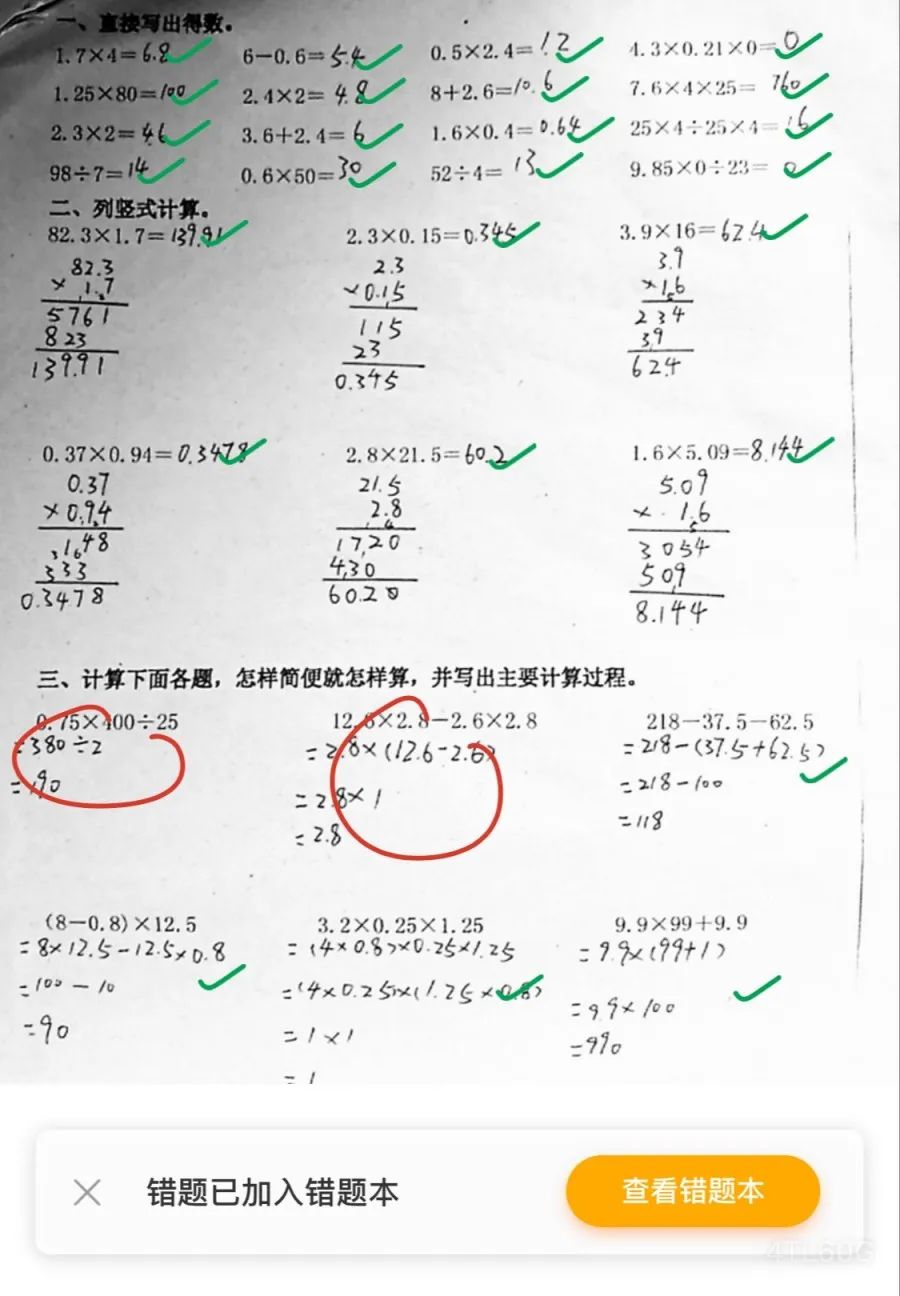 一、直接写出得数。
1.7×4=6.8 6-0.6=5.4 0.5×2.4=1.2 4.3×0.21×0=0
1.25×80=100 2.4×2=4.8 8+2.6=10.6 7.6×4×25=760
2.3×2=4.6 3.6+2.4=6 1.6×0.4=0.64 25×4÷25×4=16
98÷7=14 0.6×50=30 52÷4=13 9.85×0÷23=0
二、列竖式计算。
82.3×1.7=139.91 2.3×0.15=0.345 3.9×16=62.4
82.3 2.3 3.9
×1.7 ×0.15 ×1.6
5761 115 234
823 23 39
139.91 0.345 62.4
0.37×0.94=0.3478 2.8×21.5=60.2 1.6×5.09=8.144
0.37 21.5 5.09
×0.94 2.8 ×1.6
148 1720 3054
333 430 509
0.3478 60.20 8.144
三、计算下面各题，怎样简便就怎样算，并写出主要计算过程。
0.75×400÷25 12.6×2.8-2.6×2.8 218-37.5-62.5
=380÷2 =2.8×(12.6-2.6) =218-(37.5+62.5)
=190 =2.8×1 =218-100
=2.8 =118
(8-0.8)×12.5 3.2×0.25×1.25 9.9×99+9.9
=8×12.5-12.5×0.8 =(4×0.8)×0.25×1.25 =9.9×(99+1)
=100-10 =(4×0.25)×(1.25×0.8) =9.9×100
=90 =1×1 =990
=1
错题已加入错题本 查看错题本
4TL6UG